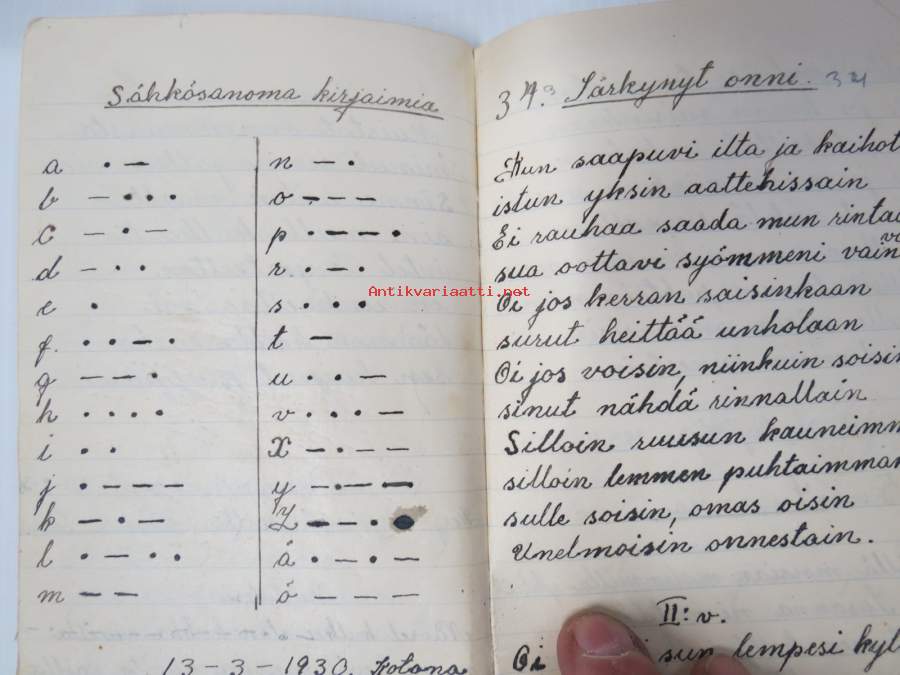 Sähkösanoma kirjaimia
a • –
b – • • •
c – • –
d – • •
e •
f. • • – •
g – – •
h • • • •
i • •
j • – – –
k – • –
l • – • •
m – –
n – •
o – – –
p • – – •
r • – •
s • • •
t –
u • • –
v • • • –
x – • – –
y – • – –
z – – • •
ä • – • –
ö – – –
13 – 3 – 1930. Kotona
34. Särkynyt onni. 34
Kun saapuvi ilta ja kaihot
istun yksin aattehissain
Ei rauhaa saada mun rintaa
sua oottavi syömmeni vain
Oi jos kerran saisinkaan
surut heittää unholaan
Oi jos voisin, niinkuin soisin
sinut nähdä rinnallain
Silloin ruusun kauneimm
silloin lemmen puhtaimman
sulle soisin, omas oisin
Unelmoisin onnestain.
II: v.
Oi sun lempesi kyl
Antikvariaatti.net